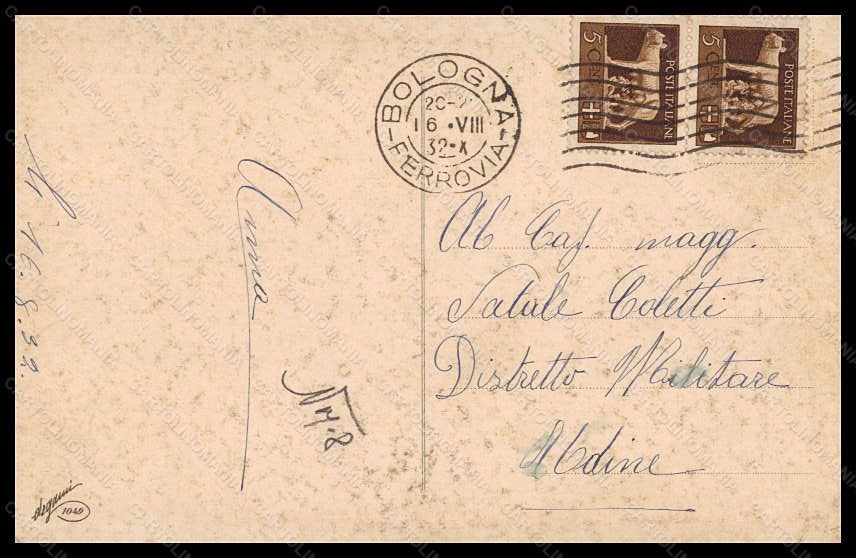 BOLOGNA
16 · VIII
32·X
FERROVIA
5 CENT
POSTE ITALIANE
5 CENT
POSTE ITALIANE
Al Cap. magg.
Natale Coletti
Distretto Militare
Udine
Anna
16.8.32.
1049
CARTOLINOMANIA